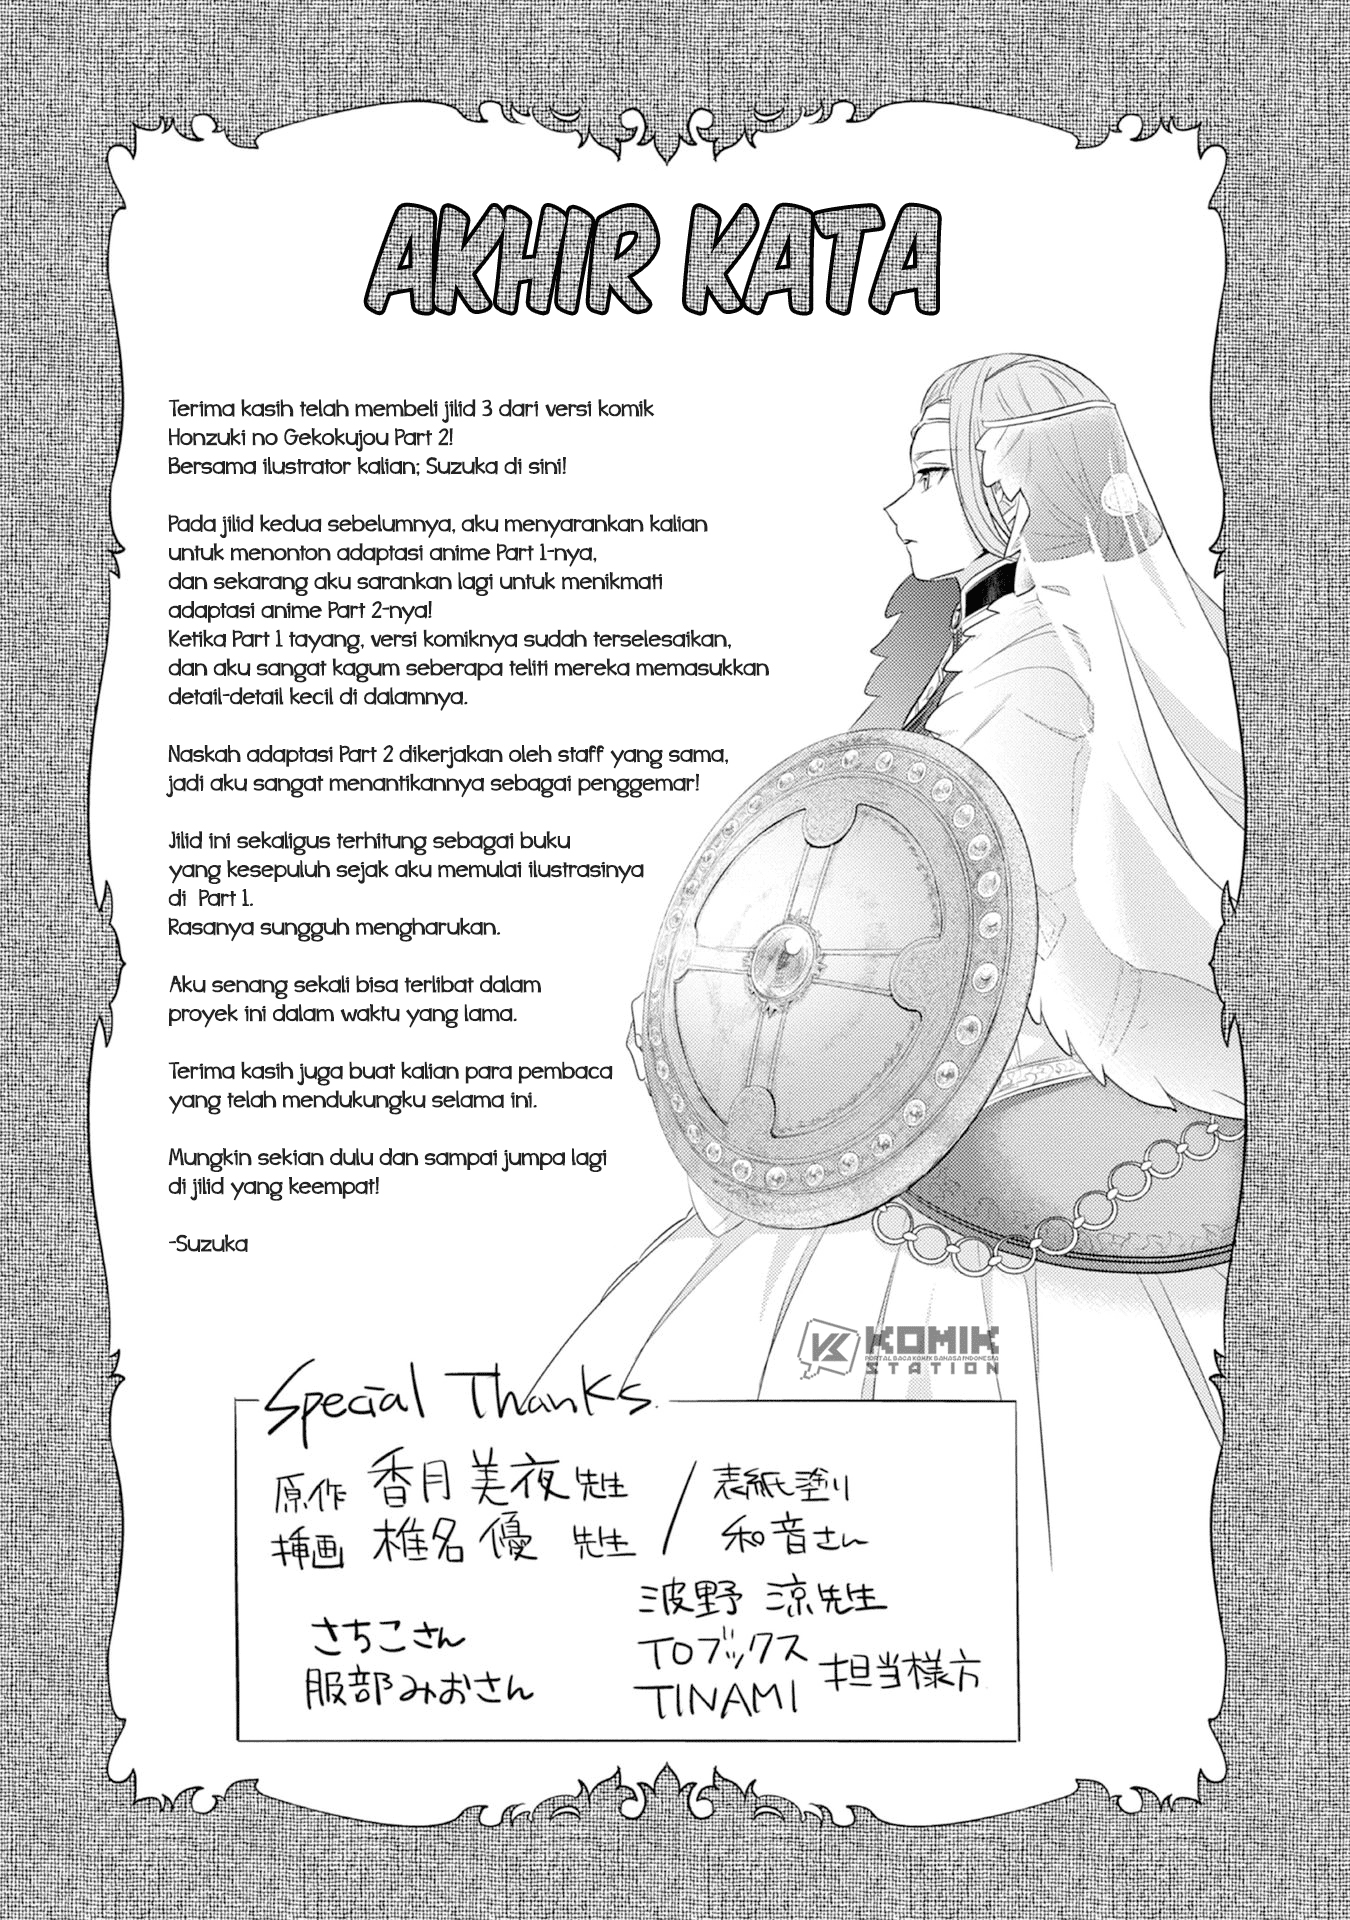 AKHIR KATA
Terima kasih telah membeli jilid 3 dari versi komik
Honzuki no Gekokujou Part 2!
Bersama ilustrator kalian; Suzuka di sini!
Pada jilid kedua sebelumnya, aku menyarankan kalian
untuk menonton adaptasi anime Part 1-nya,
dan sekarang aku sarankan lagi untuk menikmati
adaptasi anime Part 2-nya!
Ketika Part 1 tayang, versi komiknya sudah terselesaikan,
dan aku sangat kagum seberapa teliti mereka memasukkan
detail-detail kecil di dalamnya.
Naskah adaptasi Part 2 dikerjakan oleh staff yang sama,
jadi aku sangat menantikannya sebagai penggemar!
Jilid ini sekaligus terhitung sebagai buku
yang kesepuluh sejak aku memulai ilustrasinya
di Part 1.
Rasanya sungguh mengharukan.
Aku senang sekali bisa terlibat dalam
proyek ini dalam waktu yang lama.
Terima kasih juga buat kalian para pembaca
yang telah mendukungku selama ini.
Mungkin sekian dulu dan sampai jumpa lagi
di jilid yang keempat!
-Suzuka
KOMIK
PORTAL BACA KOMIK BAHASA INDONESIA
STATION
Special Thanks
原作 香月美夜先生 / 表紙塗り
挿画 椎名優 先生 和音さん
さちこさん
服部みおさん
波野 涼先生
TOブックス
TINAMI 担当様方